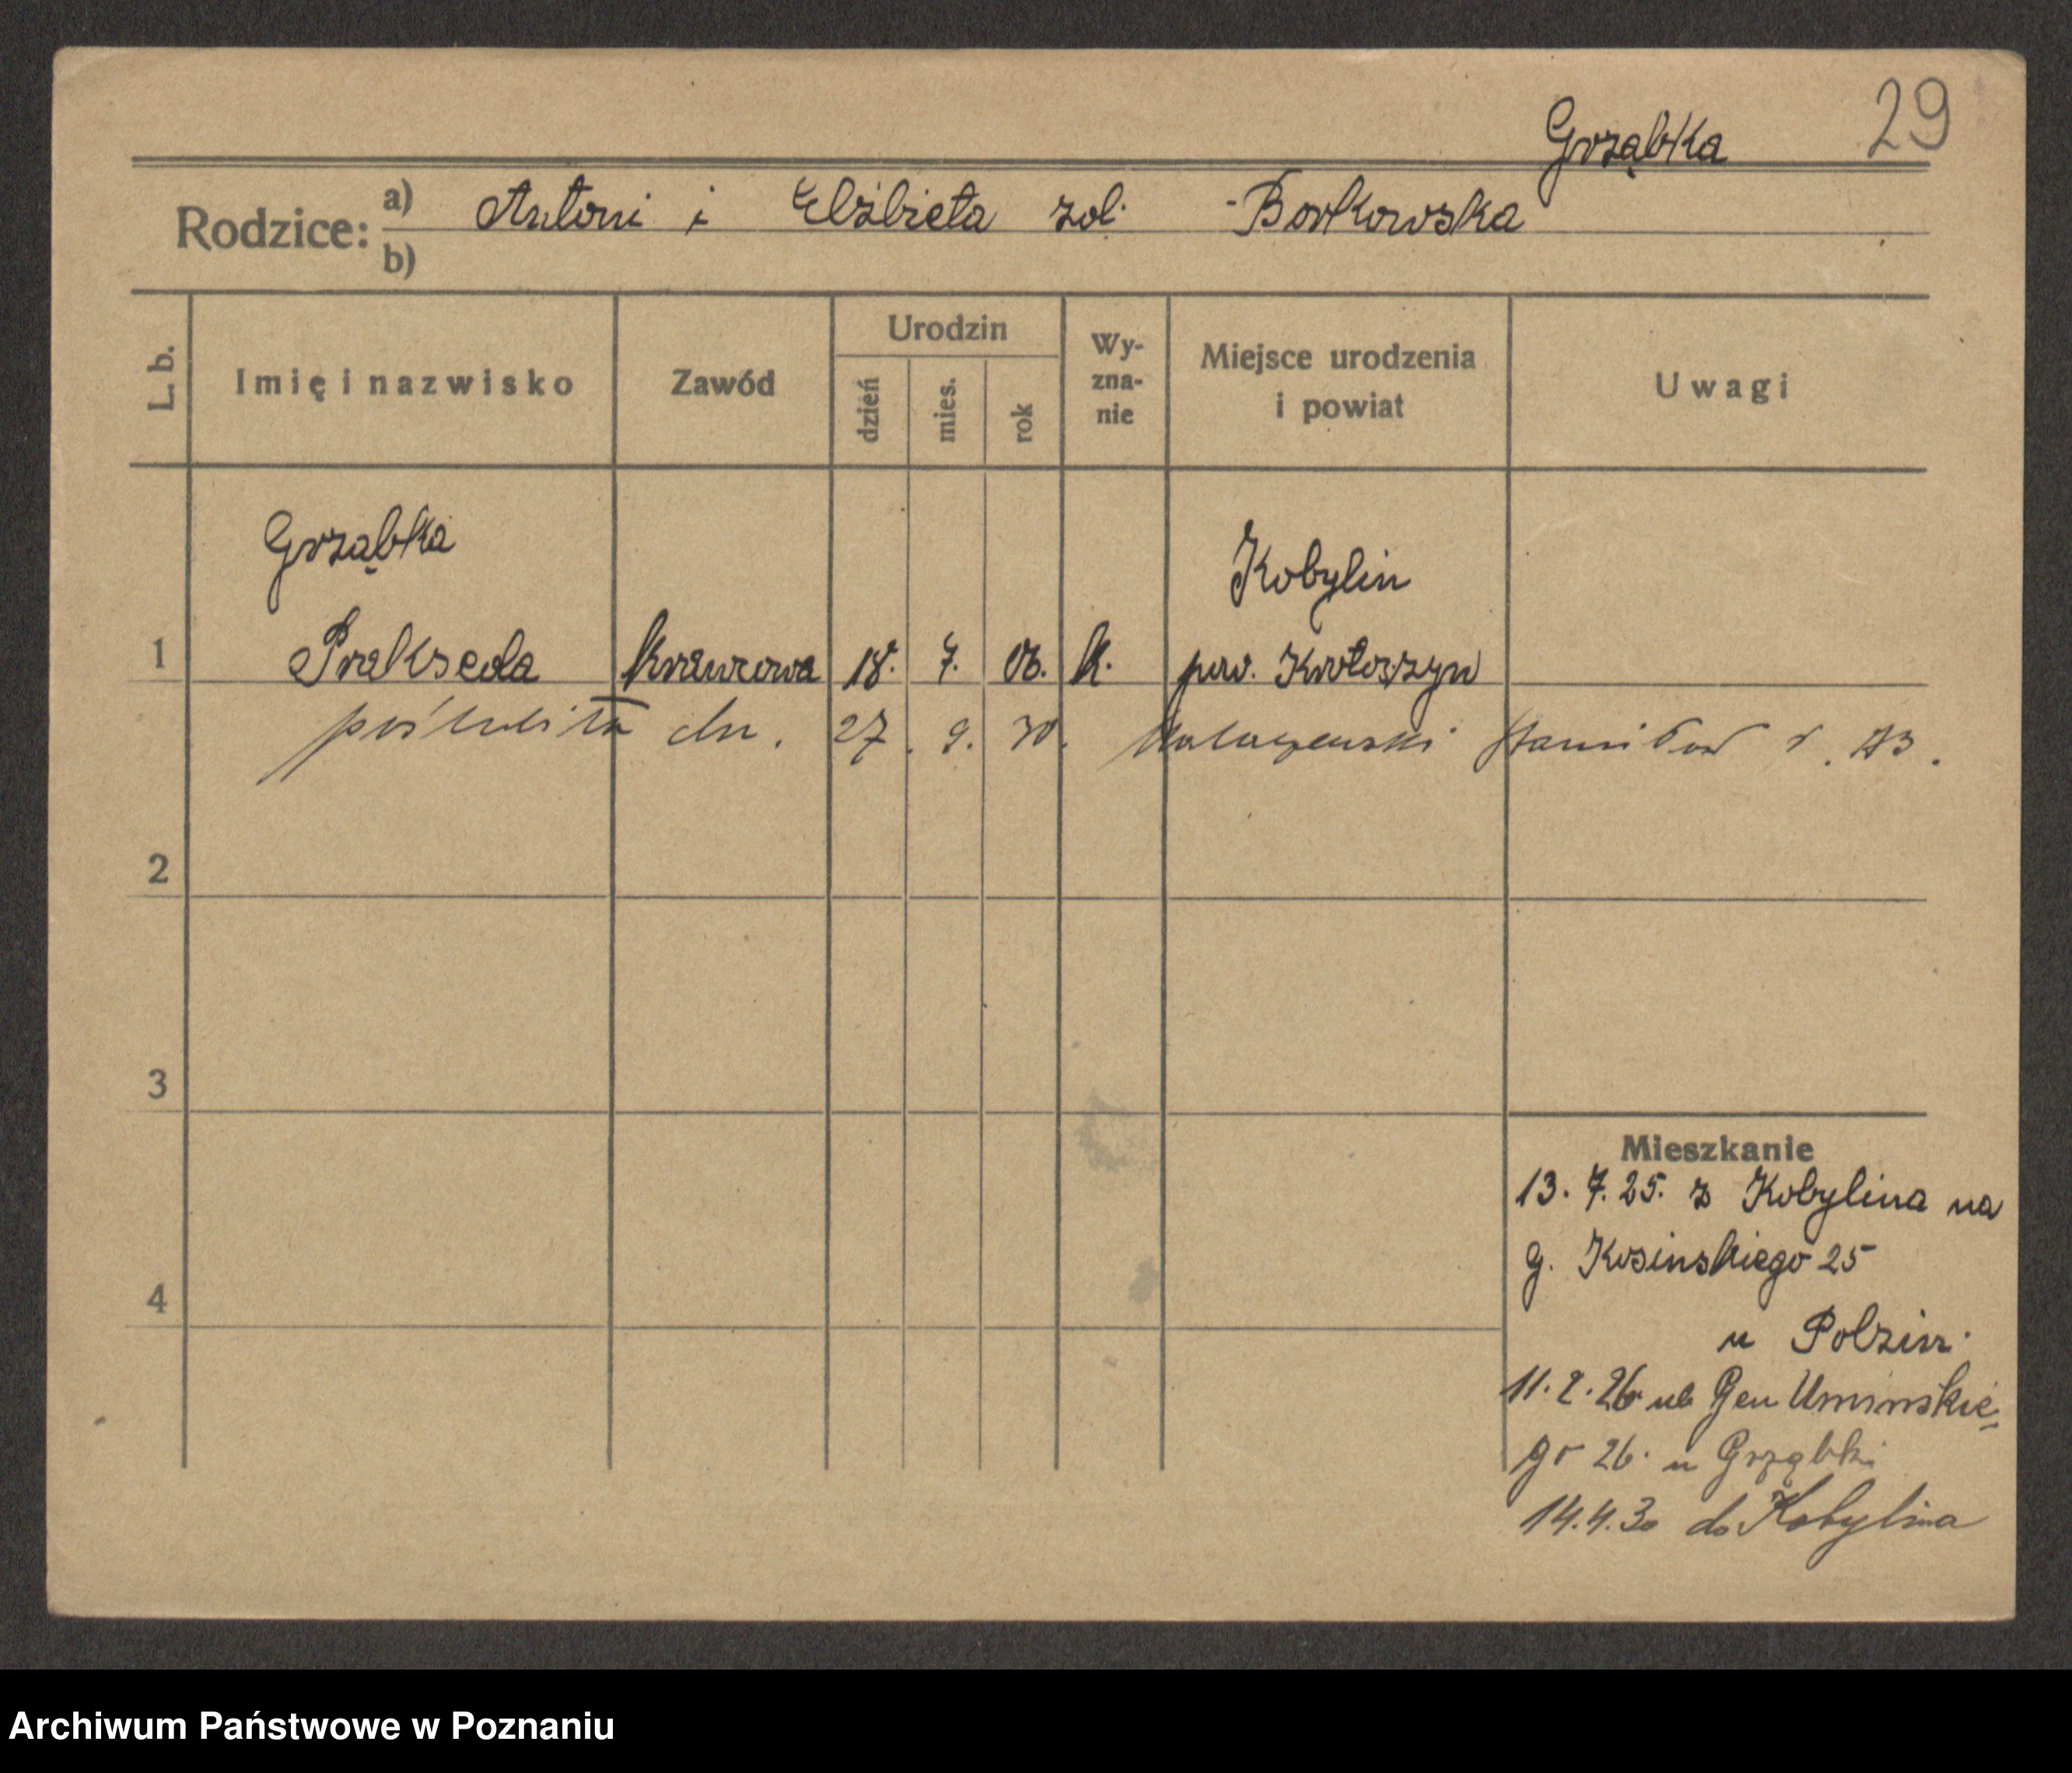 Grząbka 29
Rodzice: a) Antoni i Elżbieta zol. Borkowska
b)
L. b. Imię i nazwisko Zawód Urodzin dzień mies. rok Wy-zna-nie Miejsce urodzenia i powiat Uwagi
Grząbka Kobylin
1 Prakseda krawcowa 18. 7. 06. k. pow. Krotoszyn
poślubiła dn. 27. 9. 30. Stanisław r.
2
3
4
Mieszkanie
13. 7. 25. z Kobylina na
g. Kosinskiego 25
u Polzin.
11. 2. 26 ul Gen Uminskie-
go 26. u Grząbki
14.4.30 do Kobylina
Archiwum Państwowe w Poznaniu